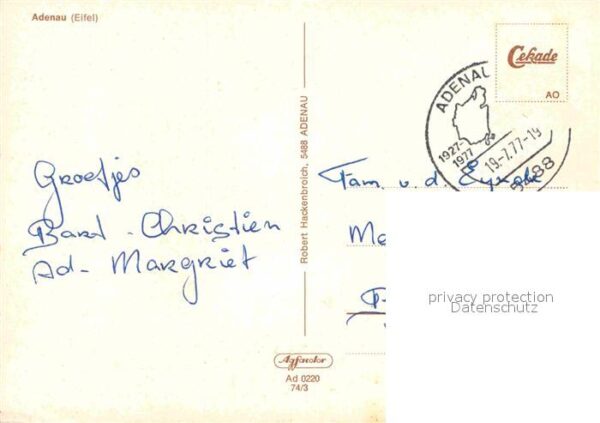 Adenau (Eifel)
Cekade
AO
ADENAU
1927-
1977
19.-7.77-19
5488
Robert Hackenbroich, 5488 ADENAU
Groetjes
Bart - Christien
Ad - Margriet
Fam. v. d.
Me
privacy protection
Datenschutz
Ad 0220
74/3